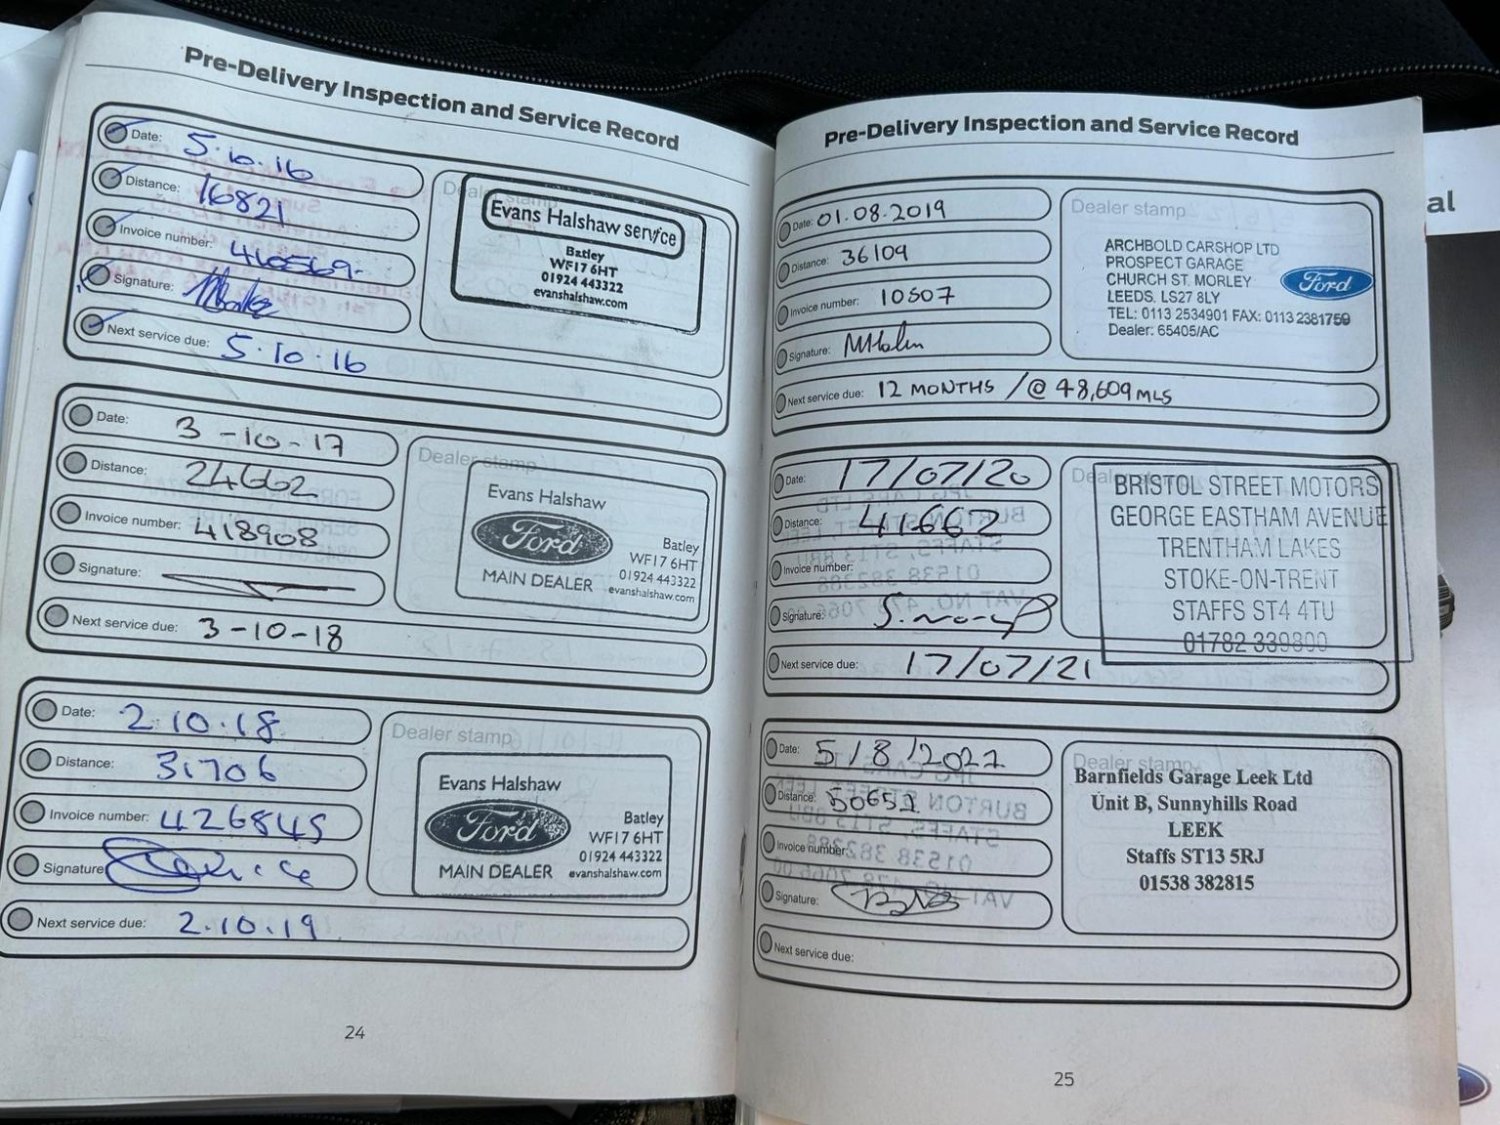 Pre-Delivery Inspection and Service Record
Date: 5.10.16
Distance: 16821
Invoice number: 410569-
Signature:
Next service due: 5.10.16
Dealer stamp
Evans Halshaw service
Batley
WF17 6HT
01924 443322
evanshalshaw.com
Date: 3-10-17
Distance: 24662
Invoice number: 418908
Signature:
Next service due: 3-10-18
Dealer stamp
Evans Halshaw
Ford
MAIN DEALER
Batley
WF17 6HT
01924 443322
evanshalshaw.com
Date: 2.10.18
Distance: 31706
Invoice number: 426845
Signature:
Next service due: 2.10.19
Dealer stamp
Evans Halshaw
Ford
MAIN DEALER
Batley
WF17 6HT
01924 443322
evanshalshaw.com
24
Pre-Delivery Inspection and Service Record
Date: 01.08.2019
Distance: 36109
Invoice number: 10507
Signature:
Next service due: 12 MONTHS /@ 48,609 MLS
Dealer stamp
ARCHBOLD CARSHOP LTD
PROSPECT GARAGE
CHURCH ST. MORLEY
LEEDS. LS27 8LY
TEL: 0113 2534901 FAX: 0113 2381759
Dealer: 65405/AC
Ford
Date: 17/07/20
Distance: 41662
Invoice number:
Signature:
Next service due: 17/07/21
Dealer stamp
BRISTOL STREET MOTORS
GEORGE EASTHAM AVENUE
TRENTHAM LAKES
STOKE-ON-TRENT
STAFFS ST4 4TU
01782 339800
Date: 5/8/2022
Distance: 50651
Invoice number:
Signature:
Next service due:
Dealer stamp
Barnfields Garage Leek Ltd
Unit B, Sunnyhills Road
LEEK
Staffs ST13 5RJ
01538 382815
25
al